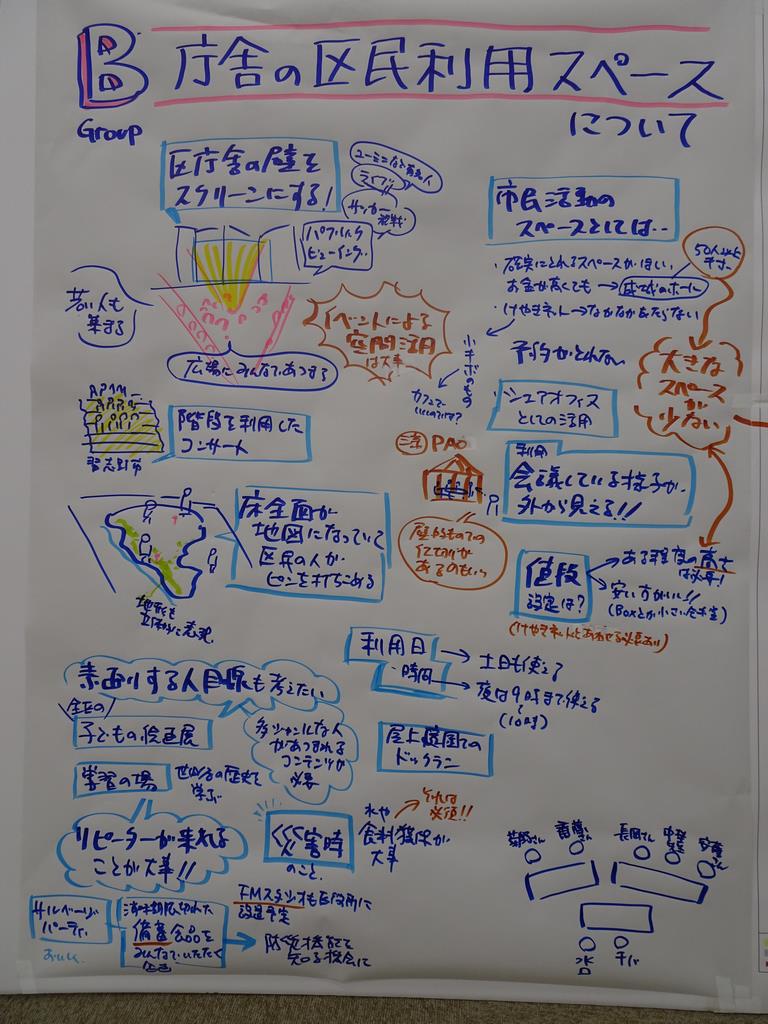 B
Group
庁舎の区民利用スペース
について
区庁舎の壁を
スクリーンにする!
ユーミンなど有名人
ライブ
サッカー
観戦
パブリック
ビューイング
若い人も
集まる
広場にみんなであつまる
イベントによる
空間活用
は大事!
階段を利用した
コンサート
習志野市
床全面が
地図になっていて
区民の人が
ピンを打ちこめる
地形も
立体的に表現
市民活動の
スペースとしては‥
・確実にとれるスペースがほしい
お金が高くても→成城のホール
・けやきネット→なかなかあたらない
予約がとれない
50人以上
大きな
スペース
が
少ない
小キボのもの
カフェで
いいのでは?
シェアオフィス
としての活用
PAO
利用
会議している様子が、
外から見える!!
仕切りが
あるのもいい
値段
設定は?
ある程度の高さ
は必要!
安い方がいい!!
(Boxとか小さい会議室)
(けやきネットとあわせる必要あり)
利用日
時間
→土日も使える
→夜は9時まで使える
(10時)
素通りする人目線も考えたい
子どもの絵画展
学習の場
せたがやの歴史を
学ぶ
多ジャンルな人
があつまれる
コンテンツが
必要
屋上庭園での
ドックラン
リピーターが来れる
ことが大事!!
災害時
のこと
水や
食料確保が
大事
それは
必須!!
サルベージ
パーティ
おいしく
備蓄食品を
みんなでいただく
企画
FMスタジオも区役所に
設置予定
→防災拠点として
知る機会に
菊池さん
斎藤さん
長岡さん
安藤さん
水口
千バ